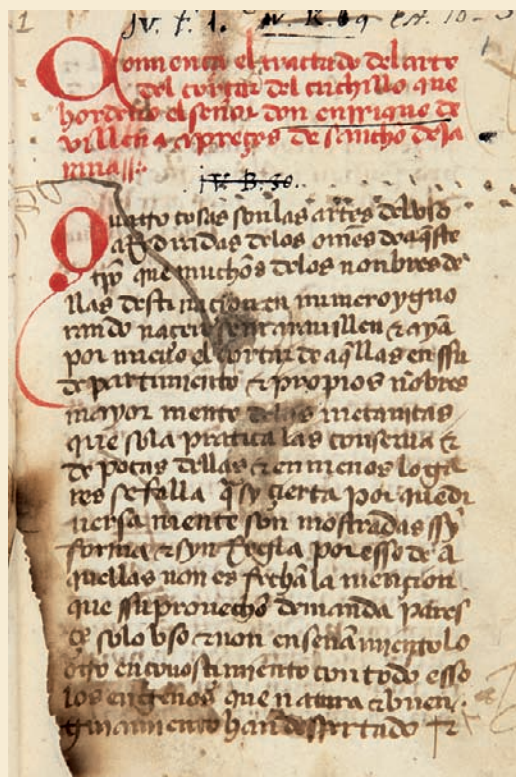 1 Jv. t. 1. iv. K. 69 est. 10-3
Comiença el tractado del arte
del cortar del cuchillo que
hordeno el señor don enrrique de
villena a preçes de sancho de ja
raua
iv. B. 30.
Quatro cosas son las artes del
de los omes de aq̃ste
tp̃o que muchos de los nonbres de
llas
rando
por nueuo el cortar de aq̃llas en ssu
departimiento & propios nõbres
mayor mente de las mecanicas
que sola pratica las conserua &
de pocas dellas & en menos loga
res se falla q̃ sy çierta por que di
uersa mente son mostradas syn
forma & syn regla por esso de a
quellas non es fecha la mençion
que ssu prouecho demanda pares
çe solo vso & non enseñamiento lo
con todo esso
los engenos que natura & buen
han despertado &